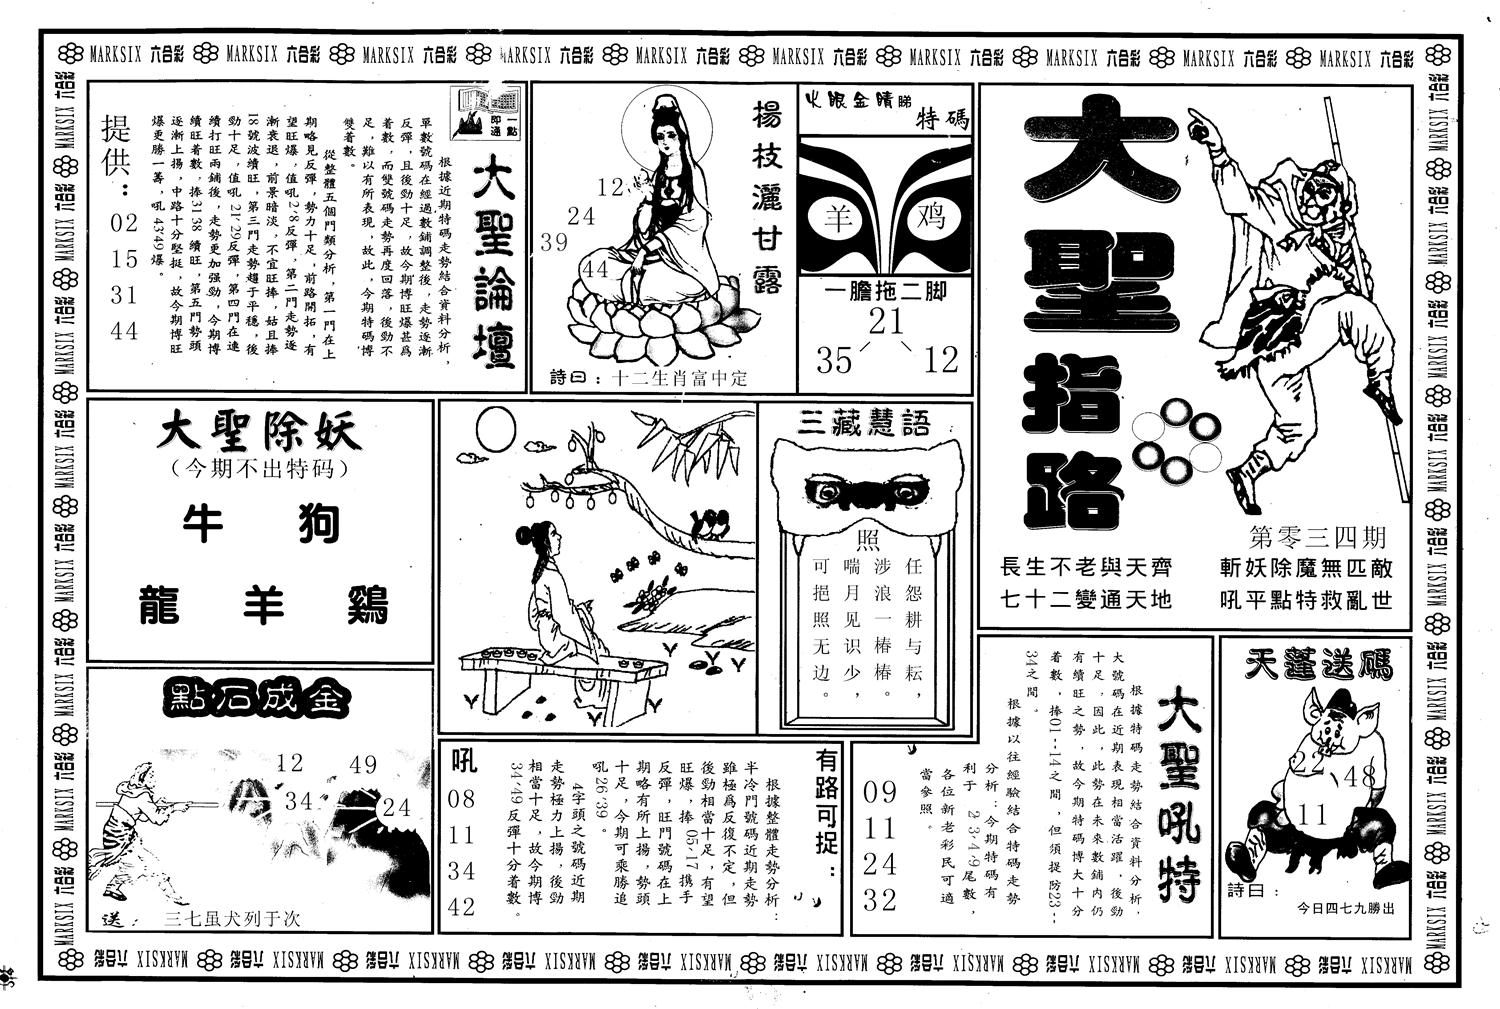 MARKSIX 六合彩 MARKSIX 六合彩 MARKSIX 六合彩 MARKSIX 六合彩 MARKSIX 六合彩 MARKSIX 六合彩 MARKSIX 六合彩 MARKSIX 六合彩 MARKSIX 六合彩 MARKSIX 六合彩
大聖指路
第零三四期
長生不老與天齊
七十二變通天地
斬妖除魔無匹敵
吼平點特救亂世
火眼金睛睇
特碼
羊 鸡
一膽拖二脚
21
35 12
楊枝灑甘露
12
24
39
44
詩曰：十二生肖富中定
一點即通
大聖論壇
根據近期特碼走勢結合資料分析，
單數號碼在經過數鋪調整後，走勢逐漸
反彈，且後勁十足，故今期博旺爆甚爲
着數，而雙號碼走勢再度回落，後勁不
足，難以有所表現，故此，今期特碼博
雙着數。
從整體五個門類分析，第一門在上
期略見反彈，勢力十足，前路開拓，有
望旺爆，值吼2·8反彈，第二門走勢逐
漸衰退，前景暗淡，不宜旺捧，姑且捧
18號波續旺，第三門走勢趨于平穩，後
勁十足，值吼21·29反彈，第四門在連
續打旺兩鋪後，走勢更加强勁，今期博
續旺着數，捧31·38續旺，第五門勢頭
逐漸上揚，中路十分堅挺，故今期博旺
爆更勝一籌，吼43·49爆。
提供：
02
15
31
44
大聖除妖
（今期不出特码）
牛 狗
龍 羊 鷄
三藏慧語
照
任怨耕与耘，
涉浪一椿椿。
喘月见识少，
可挹照无边。
點石成金
12 49
34 24
送：三七虽犬列于次
有路可捉：
根據整體走勢分析：
半冷門號碼近期走勢
雖極爲反復不定，但
後勁相當十足，有望
旺爆，捧05·17携手
反彈，旺門號碼在上
期略有所上揚，勢頭
十足，今期可乘勝追
吼26·39。
4字頭之號碼近期
走勢極力上揚，後勁
相當十足，故今期博
34·49反彈十分着數。
吼
08
11
34
42
大聖吼特
根據特碼走勢結合資料分析，
大號碼在近期表現相當活躍，後勁
十足，因此，此勢在未來數鋪内仍
有續旺之勢，故今期特碼博大十分
着數，捧01--14之間，但須提防23--
34之間。
根據以往經驗結合特碼走勢
分析：今期特碼有
利于2·3·4·9尾數，
各位新老彩民可適
當參照。
09
11
24
32
天蓬送碼
22 48
11
詩曰：
今日四七九勝出